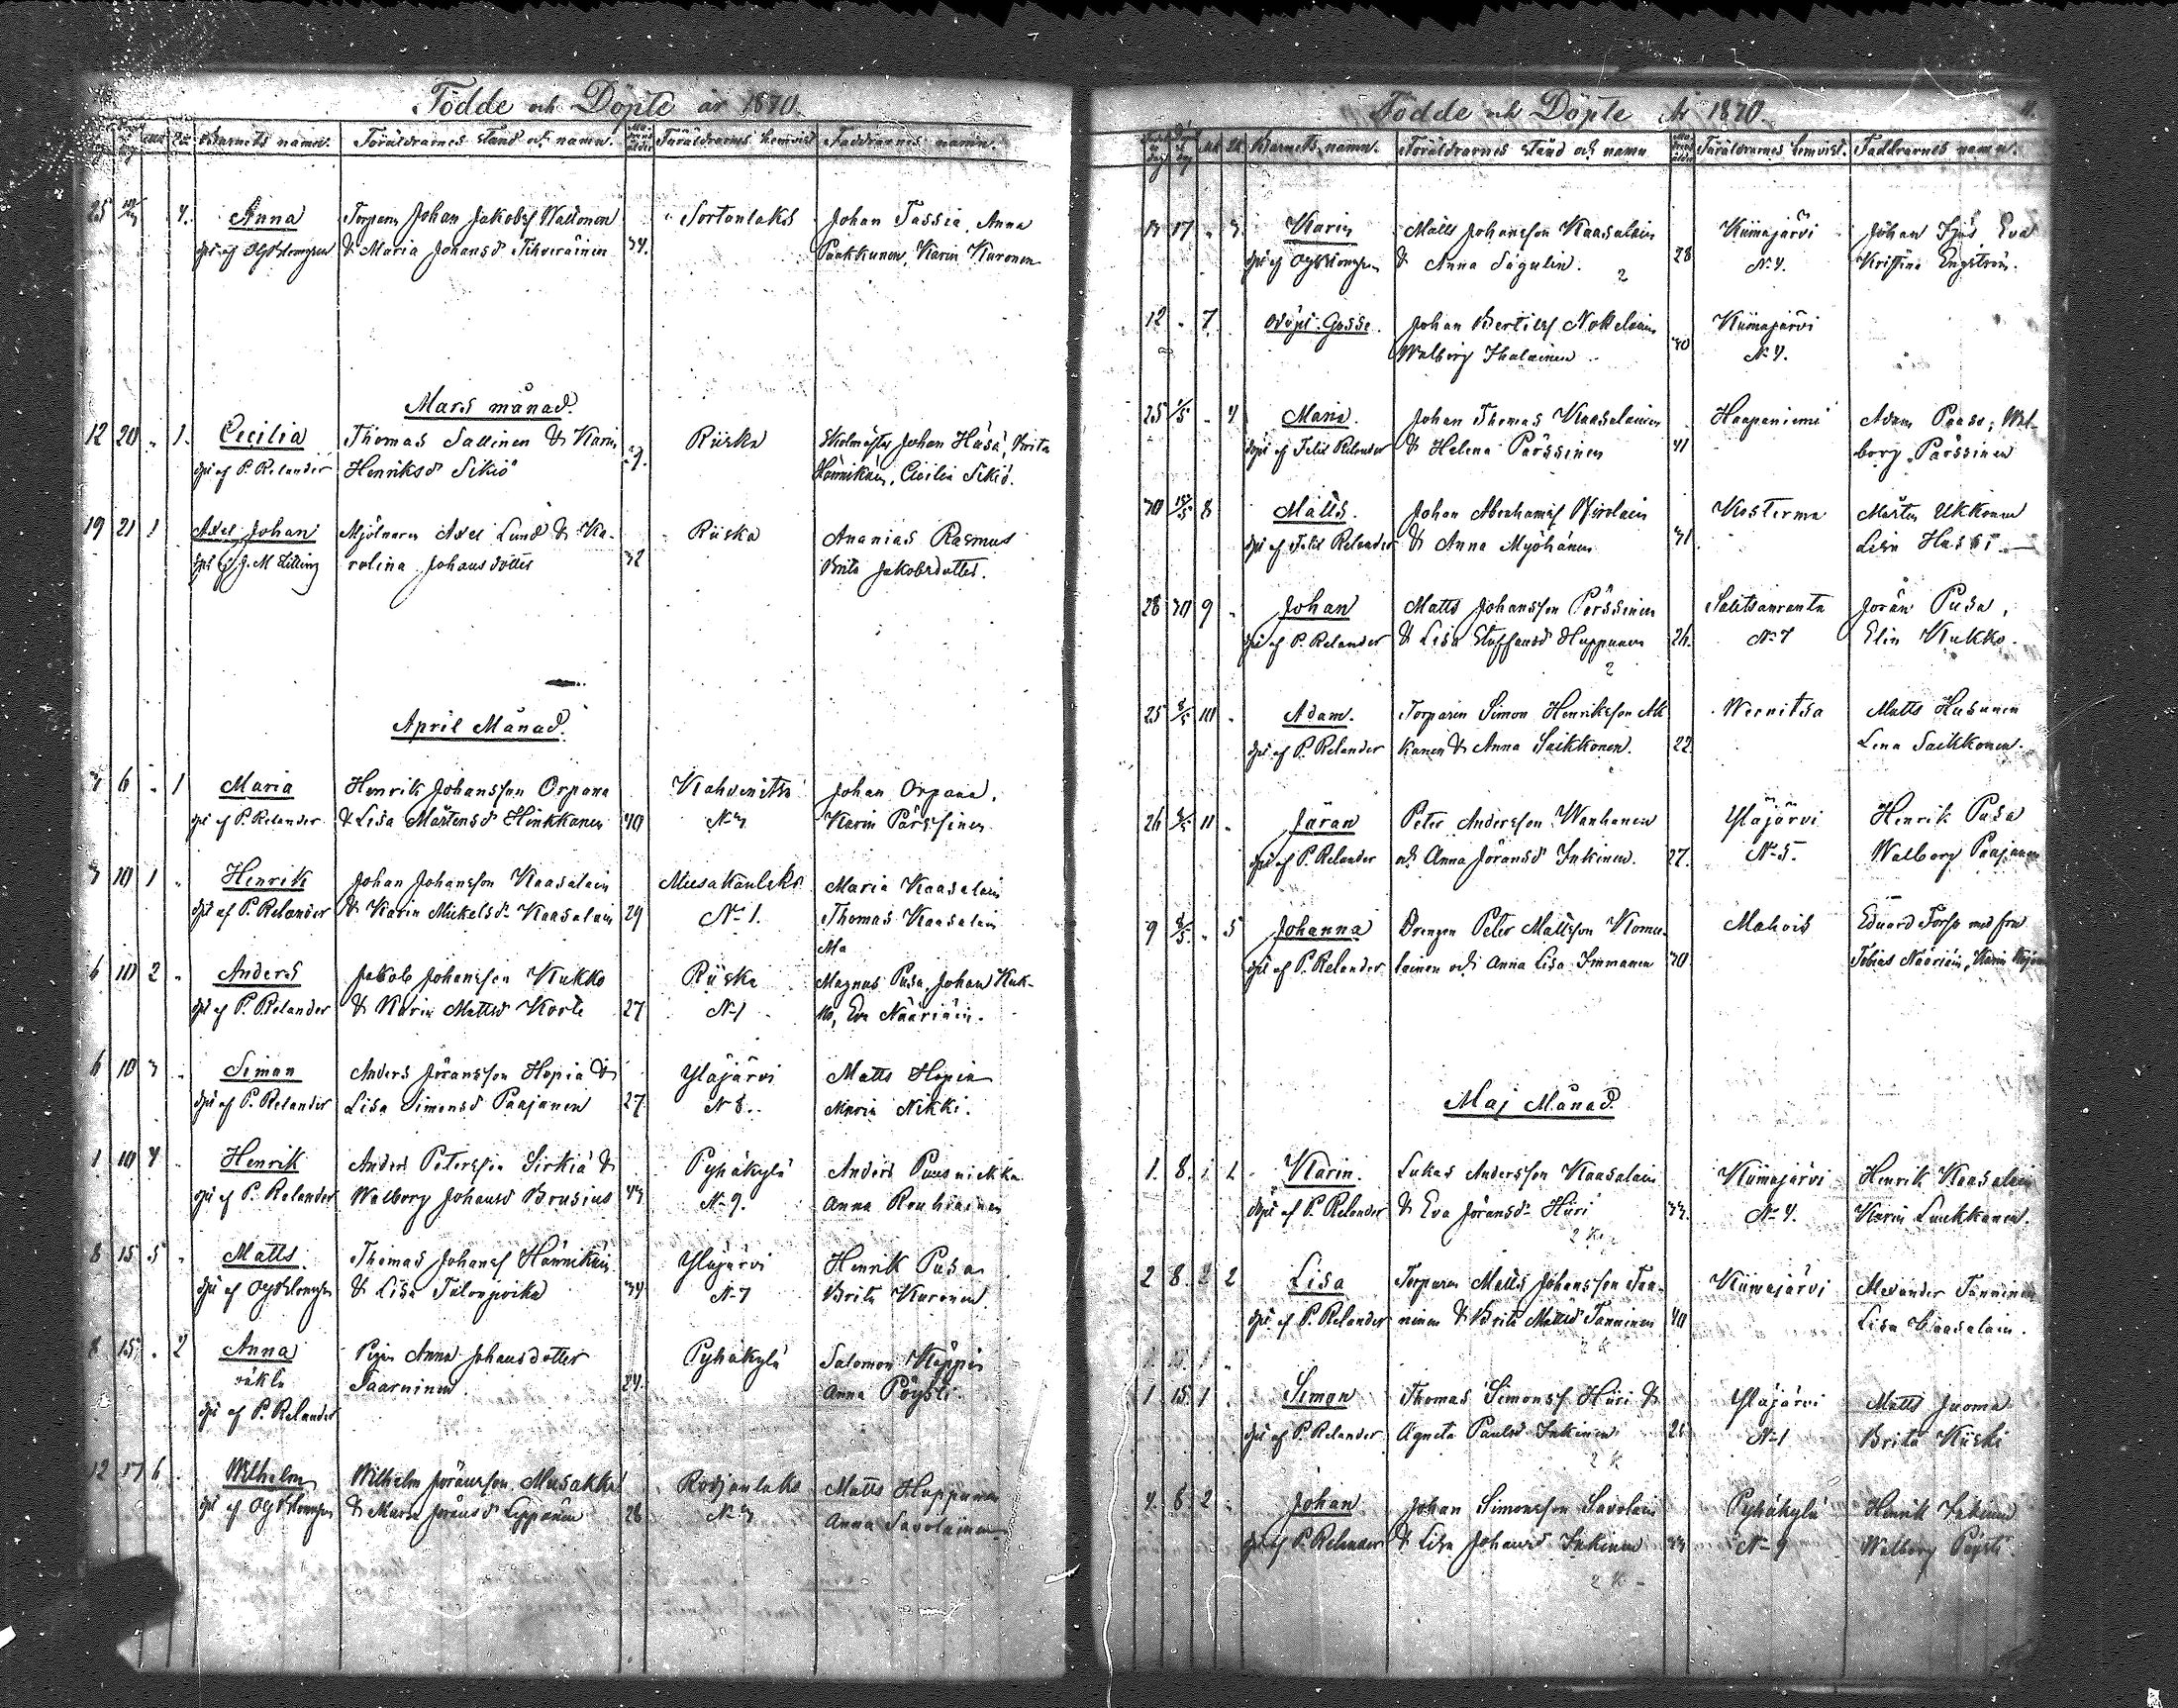 Födde och Döpte år 1870.
Barnets namn. Föräldrarnes stånd och namn. Föräldrarnes hemvist Faddrarnes namn.
25 4. Anna Torparen Johan Jakobsf Wallonen Sortanlaks Johan Tassia, Anna
& Maria Johansd Tihveräinen 34. Paakkunen, Karin Kuronen
Mars månad.
12 20 " 1. Cecilia Thomas Sallinen & Karin Riiska Skolmäster Johan Häsä, Brita
döpt af P. Relander Henriksd Sikiö Hännikäin, Cecilia Sikiö.
19 21 1 Axel Johan Mjölnaren Axel Lund & Ka- Riiska Ananias Rasmus
döpt af J. M. rolina Johansdotter 32 Brita Jakobsdotter.
April Månad.
3 6 " 1 Maria Henrik Johansson Orpana Kahvenitsa Johan Orpana,
döpt af P. Relander & Lisa Mårtensd Hinkkanen 40 No 3 Karin Pärssinen
3 10 1 " Henrik Johan Johansson Kaasalain Musakanlaks Maria Kaasalain
döpt af P. Relander & Karin Mickelsd Kaasalain 29 No 1. Thomas Kaasalain
Ma
6 10 2 " Anders Jakob Johansson Kukko Riiska Magnus Pusa, Johan Kuk-
döpt af P. Relander & Karin Mattsd Korte 27 No 1 ko, Eva Nääriäin.
6 10 3 " Simon Anders Jöransson Hopia & Yläjärvi Matts Hopia
döpt af P. Relander Lisa Simonsd Paajanen 27 No 8. Maria Nikki.
1 10 4 " Henrik Anders Petersson Sirkiä & Pyhäkylä Anders Puusniekka
döpt af P. Relander Walborg Johansd Brusius 43 No 9. Anna Rouhiainen
8 15 5 " Matts. Thomas Johansf Hännikäin Yläjärvi Henrik Pusa
& Lisa Talonpoika 34 No 7 Brita Kuronen.
8 15 " 2 Anna Pigan Anna Johansdotter Pyhäkylä Salomon Käppi
oäkta Saarninen. 24. Anna Pöysti.
döpt af P. Relander
12 17 6 Wilhelm Wilhelm Jöransson Musakka Rodjanlaks Matts Huppunen
& Maria Jöransd Lyppänen 26 No 3 Anna Savolainen
Födde och Döpte År 1870. 11.
Barnets namn. Föräldrarnes stånd och namn Föräldrarnes hemvist. Faddrarnes namn.
13 17 " 3. Karin Matts Johansson Kaasalain Kiimajärvi Johan Eva
& Anna Sagulin. 28 No 4. Kristina Engström.
2
12 " 7 odöpt Gosse. Johan Bertilsf Nokelain Kiimajärvi
Walborg Ihalainen 30 No 4.
25 1/5 " 4 Maria. Johan Thomas Kaasalainen Haapaniemi Adam Paaso, Wal-
döpt af Felix Relander & Helena Pärssinen 41 borg Pärssinen
30 15/5 8 Matts. Johan Abrahamsf Kosterma Mårten Ukkonen
döpt af Felix Relander & Anna Myöhänen 31 Lisa Hassi
28 30 9 " Johan Matts Johansson Pärssinen Salitsanranta Jöran Pusa,
döpt af P. Relander & Lisa Staffansd Huppunen 26. No 7 Elin Kukko.
2
25 8/5 10 " Adam. Torparen Simon Henriksson Ak Wernitsa Matts Husunen
döpt af P. Relander kanen & Anna Saikkonen. 22 Lena Saikkonen.
26 8/5 11 " Jöran Peter Andersson Wanhanen Yläjärvi Henrik Pusa
döpt af P. Relander och Anna Jöransd Inkinen. 27. No 5. Walborg Paajanen
9 8/5 " 5 Johanna Drengen Peter Mattsson Komu- Mahois Eduard Forss med fru
döpt af P. Relander lainen och Anna Lisa Immanen 30 Tobias Nääriäin, Karin
Maj Månad.
1. 8. 1 Karin. Lukas Andersson Kaasalain Kiimajärvi Henrik Kaasalain
döpt af P. Relander & Eva Jöransd Hiiri 33. No 4. Karin Luukkanen.
2 K
2 8. 2 2 Lisa Torparen Matts Johansson Tan- Kiimajärvi Alexander Tanninen
döpt af P. Relander ninen & Brita Mattsd Tanninen 40 Lisa Kaasalain.
2 K
1 15 1 " Simon Thomas Simonsf Hiiri & Yläjärvi Matts Juoma
döpt af P. Relander Agneta Paulsd Inkinen No 1 Brita Kiiski
2 K
4. 8 2 " Johan Johan Simonsson Savolain Pyhäkylä Henrik Inkinen
döpt af P. Relander & Lisa Johansd Inkinen 33 No 9 Walborg Pöysti.
2 K